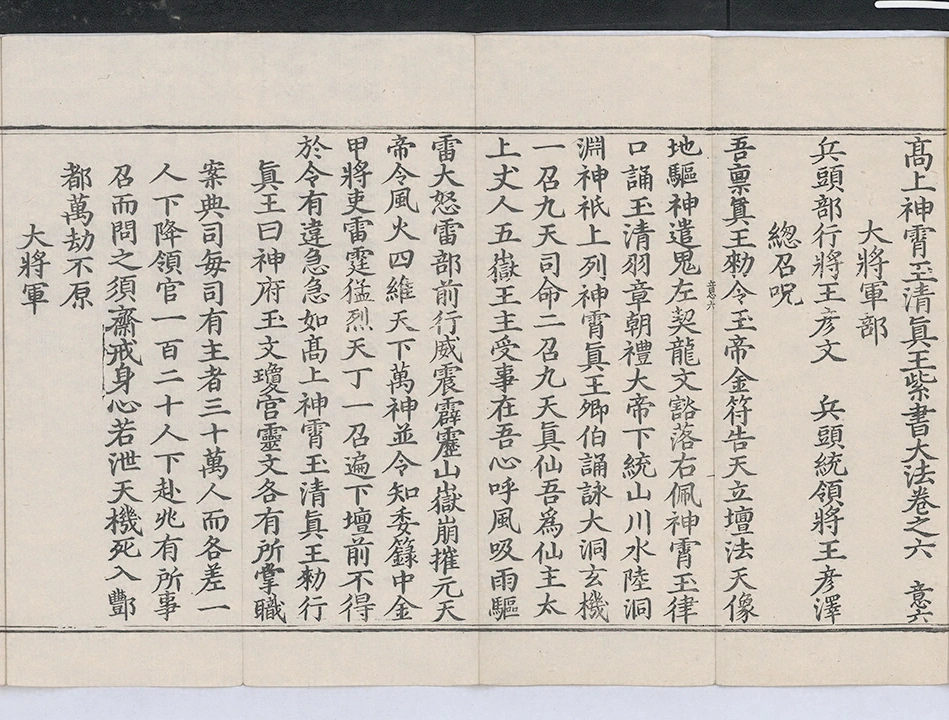 髙上神霄玉清眞王紫書大法卷之六 意六
大將軍部
兵頭部行將王彦文 兵頭統領將王彦澤
總召呪
吾禀眞王勑令玉帝金符告天立壇法天像
意六
地驅神遣鬼左契龍文豁落右佩神霄玉律
口誦玉清羽章朝禮大帝下統山川水陸洞
淵神祇上列神霄眞王卿伯誦詠大洞玄機
一召九天司命二召九天眞仙吾爲仙主太
上丈人五嶽王主受事在吾心呼風吸雨驅
雷大怒雷部前行威震霹靂山嶽崩摧元天
帝令風火四維天下萬神並令知委籙中金
甲將吏雷霆猛烈天丁一召遍下壇前不得
於令有違急急如髙上神霄玉清眞王勑行
眞王曰神府玉文瓊宫靈文各有所掌職
案典司每司有主者三十萬人而各差一
人下降領官一百二十人下赴兆有所事
召而問之須齋戒身心若泄天機死入酆
都萬劫不原
大將軍